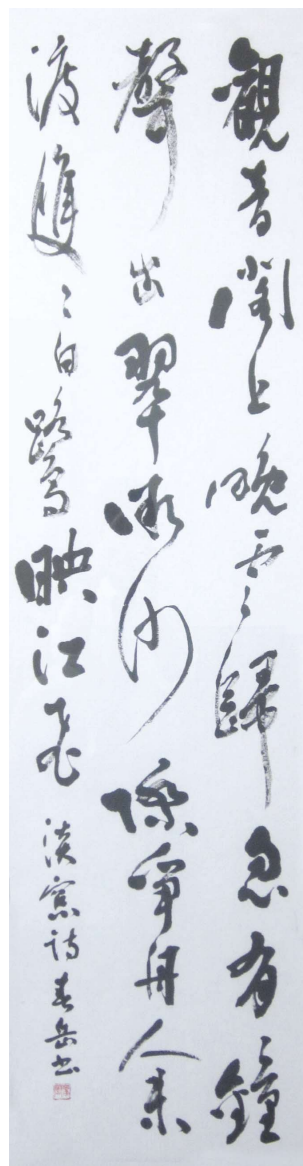 觀音閣上晩雲歸忽有鐘
聲出翠微沙際爭舟人未
渡雙〻白鷺映江飛 淡窓詩 春岳書